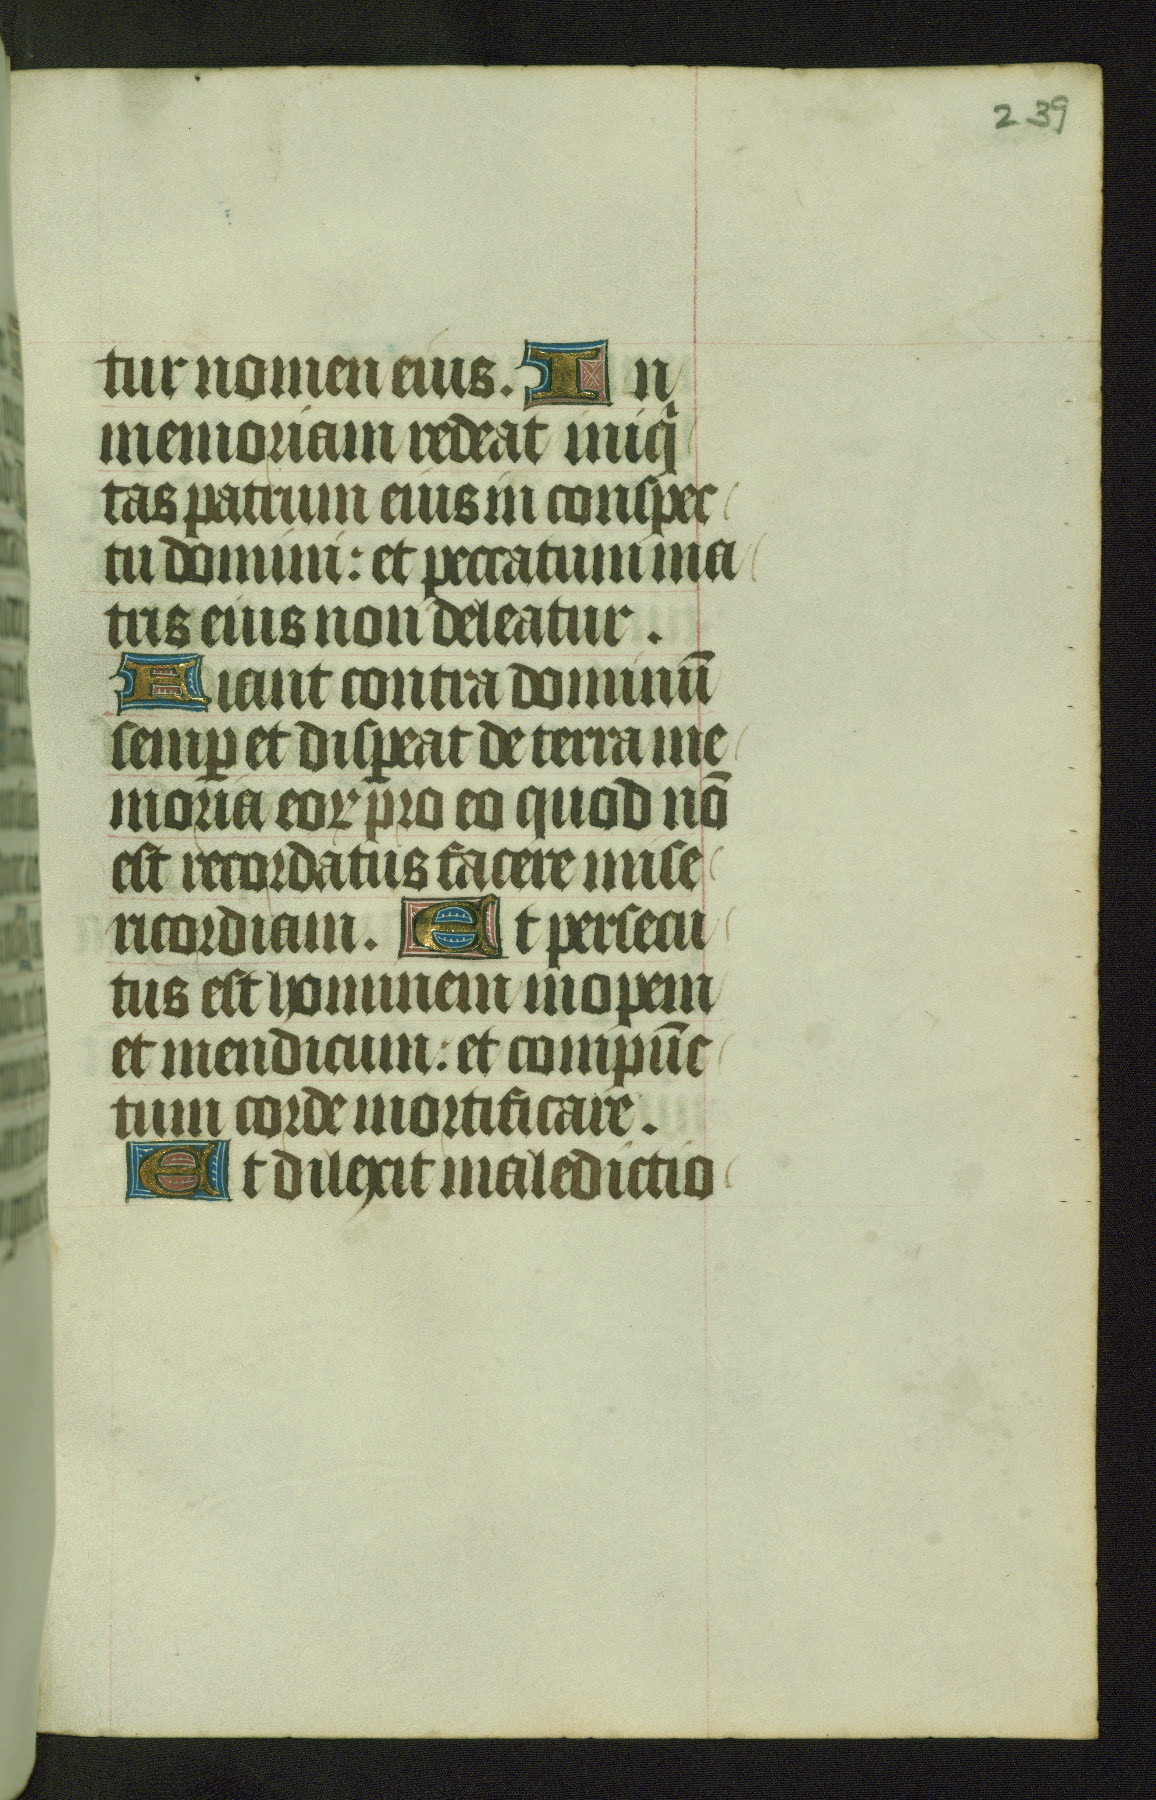 239
tur nomen eius. In
memoriam redeat iniqͥ
tas patrum eius in conspec
tu domini: et peccatum ma
tris eius non deleatur.
Fiant contra dominū
semꝑ et disꝑeat de terra me
moria eoꝝ pro eo quod nō
est recordatus facere mise
ricordiam. Et persecu
tus est hominem inopem
et mendicum: et compūc
tum corde mortificare.
Et dilexit maledictio